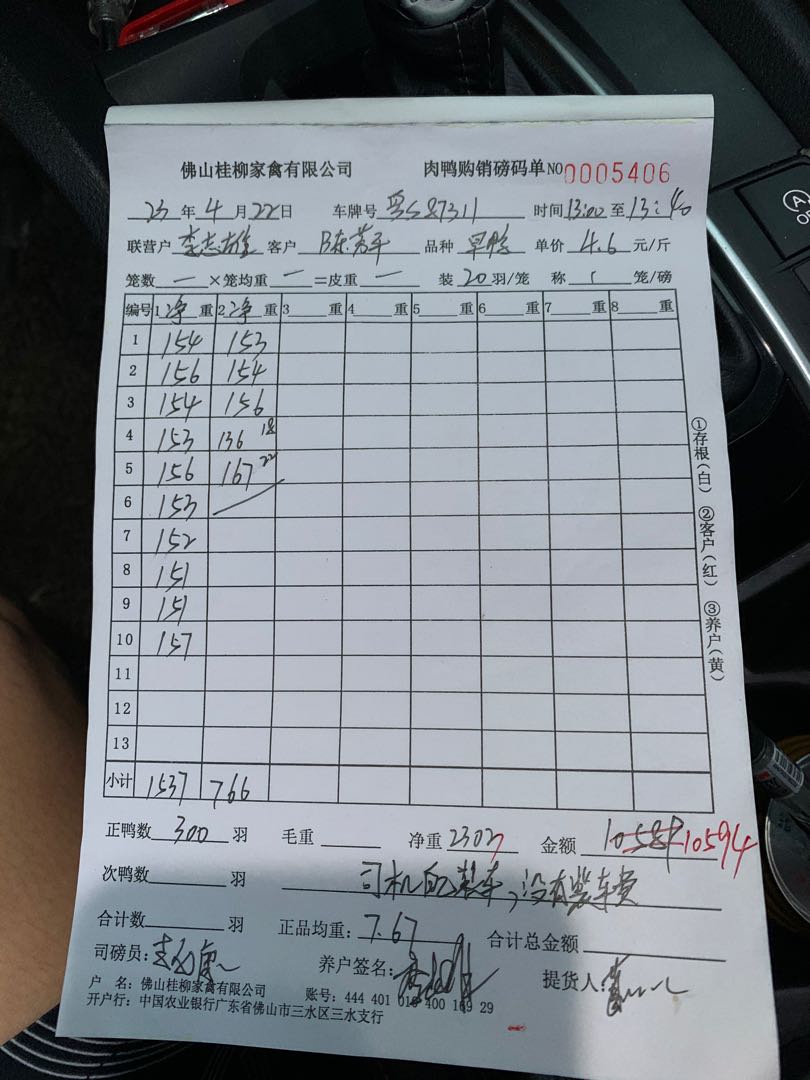 佛山桂柳家禽有限公司 肉鸭购销磅码单 NO 0005406
23 年 4 月 22 日 车牌号 粤S87311 时间 13:00 至 13:40
联营户 李志雄 客户 陈芳平 品种 旱鸭 单价 4.6 元/斤
笼数 一 ×笼均重 一 =皮重 一 装 20 羽/笼 称 1 笼/磅
编号 1 净 重 2 净 重 3 重 4 重 5 重 6 重 7 重 8 重
1 154 153
2 156 154
3 154 156
4 153 136 18
5 156 167 22
6 153
7 152
8 151
9 151
10 157
11
12
13
小计 1537 766
①存根(白) ②客户(红) ③养户(黄)
正鸭数 300 羽 毛重 净重 2303 金额 10589 10594
次鸭数 羽 司机自己装车,没有装车费
合计数 羽 正品均重: 7.67 合计总金额
司磅员: 养户签名: 提货人
户 名: 佛山桂柳家禽有限公司 账号: 444 401 010 400 169 29
开户行: 中国农业银行广东省佛山市三水区三水支行